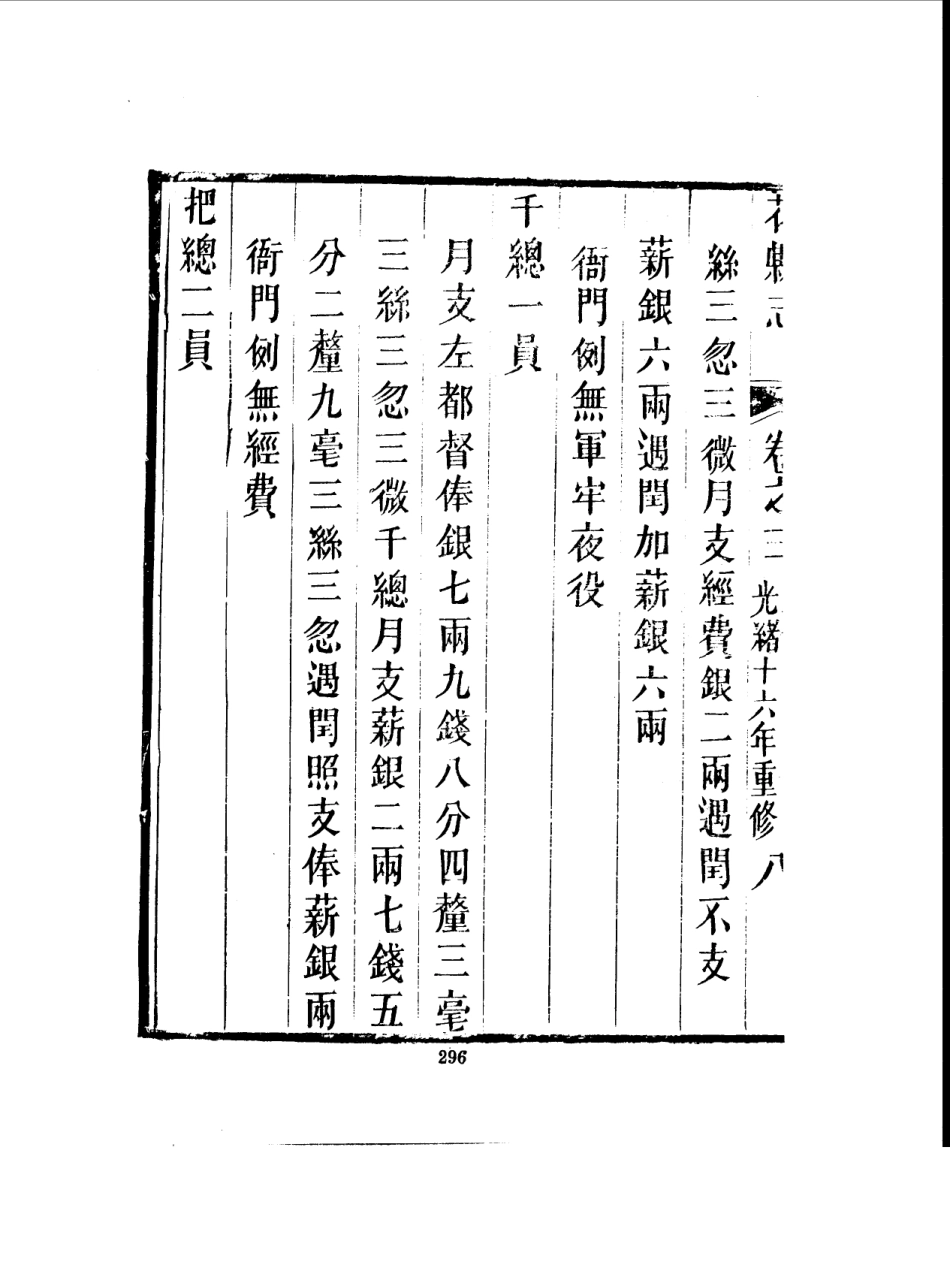 花縣志 卷之二 光緒十六年重修 八
絲三忽三微月支經費銀二兩遇閏不支
薪銀六兩遇閏加薪銀六兩
衙門例無軍牢夜役
千總一員
月支左都督俸銀七兩九錢八分四釐三毫
三絲三忽三微千總月支薪銀二兩七錢五
分二釐九毫三絲三忽遇閏照支俸薪銀兩
衙門例無經費
把總二員
296